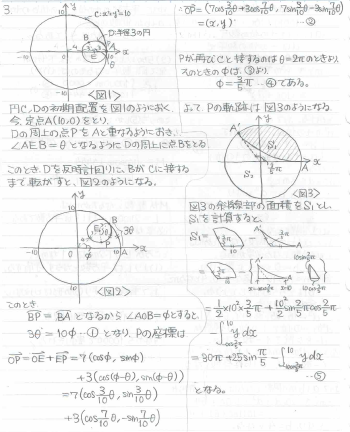 3.
y
C:x²+y²=10²
D:半径3の円
B
P
A
E
θ
x
-10
10
-10
<図1>
円C,Dの初期配置を図1のようにおく。
今、定点A(10,0)をとり、
Dの周上の点PをAと重なるようにおき、
∠AEB=θとなるようにDの周上に点Bをとる。
このときDを反時計回りに、BがCに接する
まで転がすと、図2のようになる。
y
10
B
E
θ
3θ
P
φ
A
x
-10
10
-10
<図2>
このとき、
BP = BAとなるから∠AOB=φとすると、
3θ=10φ…① となり、Pの座標は
OP=OE+EP=7(cosφ, sinφ)
+3(cos(φ-θ), sin(φ-θ))
=7(cos3/10θ, sin3/10θ)
+3(cos7/10θ, -sin7/10θ)
∴OP=(7cos3/10θ+3cos7/10θ, 7sin3/10θ-3sin7/10θ)
=(x,y) …②
Pが再びCと接するのはθ=2πのときより
そのときφは、①より、
φ=3/5π …④である。
よって、Pの軌跡は図3のようになる。
y
A'
S₁
3/5π
A
x
S₂
<図3>
図3の斜線部の面積をS₁とし、
S₁を計算すると、
S₁=
=1/2×10²×3/5π+10²/2 sin2/5πcos2/5π
=30π+25sinπ/5-
y dx
…⑤
となる。